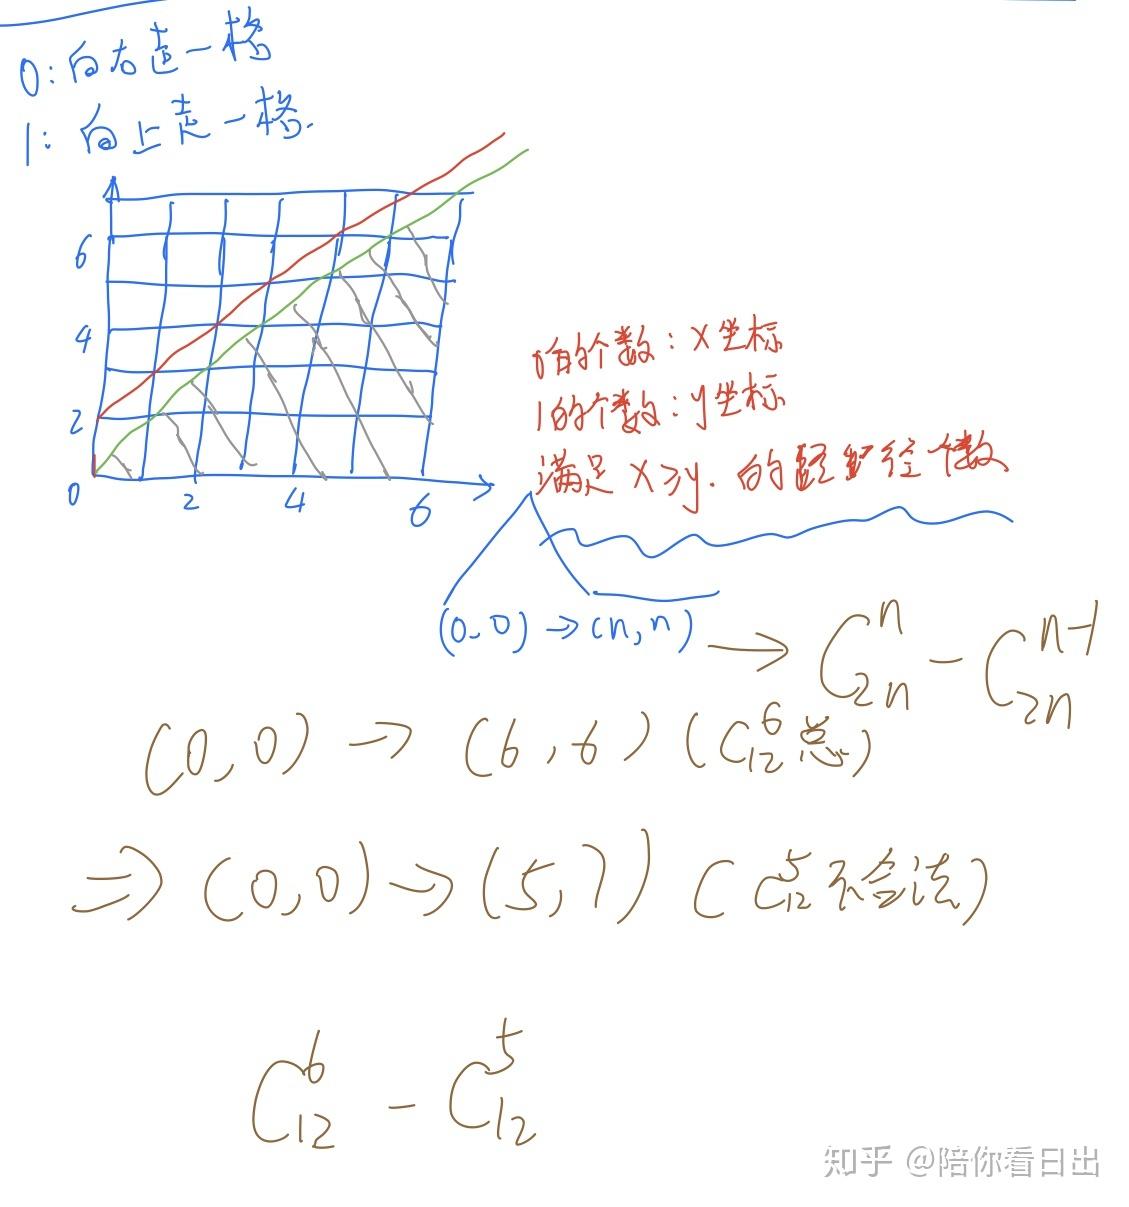 0:向右走一格
1:向上走一格.
6
4
2
0
2
4
6
0的个数:x坐标
1的个数:y坐标
满足x≥y.的路径个数
(0,0)→(n,n) → C_{2n}^{n} - C_{2n}^{n-1}
(0,0)→(6,6)(C_{12}^{6}总)
⇒(0,0)→(5,7)(C_{12}^{5}不合法)
C_{12}^{6} - C_{12}^{5}
知乎 @陪你看日出